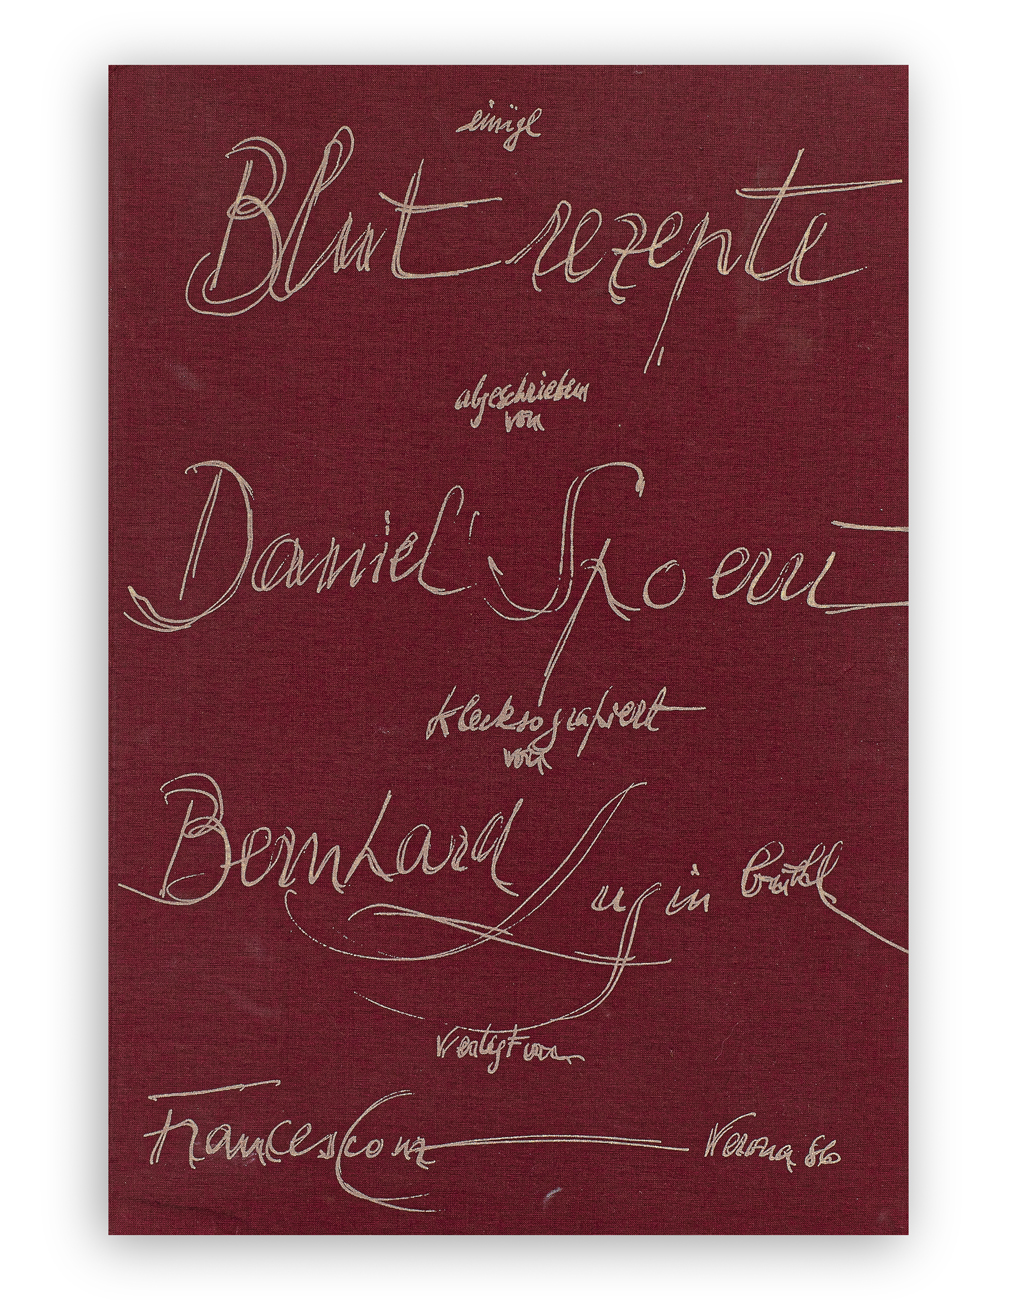 einige
Blut rezepte
abgeschrieben
von
Daniel Spoerri
klecksografiert
von
Bernhard Luginbühl
verlegt von
Francesco Conz Verona 86